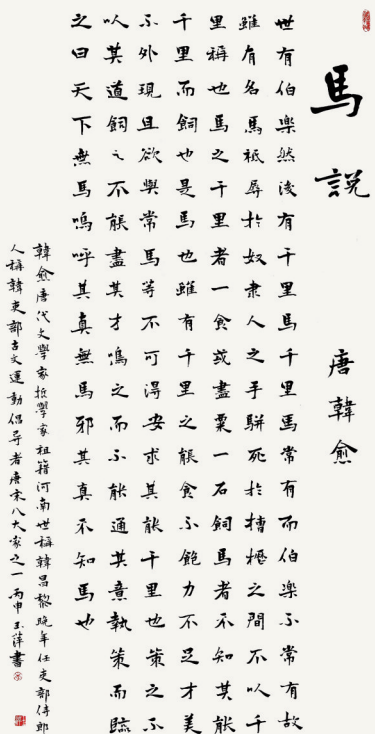 馬說
唐韓愈
世有伯樂然後有千里馬千里馬常有而伯樂不常有故
雖有名馬祇辱於奴隸人之手駢死於槽櫪之間不以千
里稱也馬之千里者一食或盡粟一石飼馬者不知其能
千里而飼也是馬也雖有千里之能食不飽力不足才美
不外現且欲與常馬等不可得安求其能千里也策之不
以其道飼之不能盡其才鳴之而不能通其意執策而臨
之曰天下無馬嗚呼其真無馬邪其真不知馬也
韓愈唐代文學家哲學家祖籍河南世稱韓昌黎晚年任吏部侍郎
人稱韓吏部古文運動倡导者唐宋八大家之一丙申玉萍書